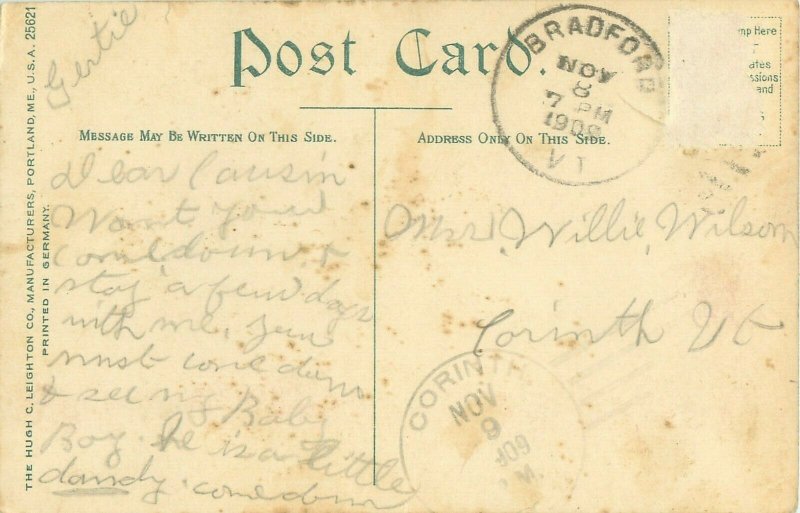 THE HUGH C. LEIGHTON CO., MANUFACTURERS, PORTLAND, ME., U.S.A. 25621
PRINTED IN GERMANY.
Gertie
Post Card.
MESSAGE MAY BE WRITTEN ON THIS SIDE.
Dear Cousin
Wont you
come down &
stay a few days
with me. you
must come down
& see my Baby
Boy. he is a little
dandy. come down
ADDRESS ONLY ON THIS SIDE.
BRADFORD
NOV
8
7 PM
VT
mp Here
ates
ssions
and
Mrs. Willie Wilson
Corinth Vt
CORINTH
NOV
9
909
M